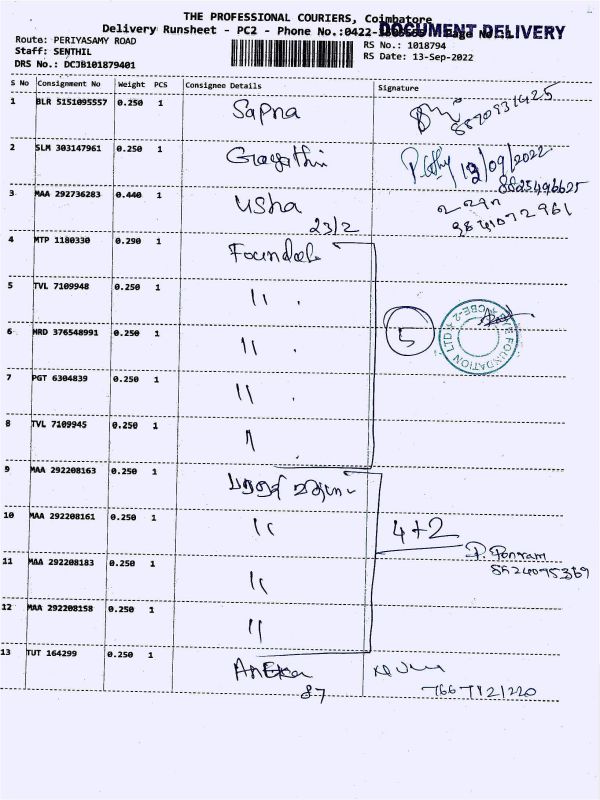 THE PROFESSIONAL COURIERS, Coimbatore
Delivery Runsheet - PC2 - Phone No.:0422- Page No. 1
DOCUMENT DELIVERY
Route: PERIYASAMY ROAD
RS No.: 1018794
Staff: SENTHIL
RS Date: 13-Sep-2022
DRS No.: DCJB101879401
S No Consignment No Weight PCS Consignee Details Signature
1 BLR 5151095557 0.250 1 Sapna
2 SLM 303147961 0.250 1 Gayathri 13/09/2022
8825496625
3 MAA 292736283 0.440 1 Usha
23/2
4 MTP 1180330 0.290 1
5 TVL 7109948 0.250 1 "
6 MRD 376548991 0.250 1 " 5
7 PGT 6304839 0.250 1 "
8 TVL 7109945 0.250 1 "
9 MAA 292208163 0.250 1
10 MAA 292208161 0.250 1 " 4+2
11 MAA 292208183 0.250 1 "
12 MAA 292208158 0.250 1 "
13 TUT 164299 0.250 1
87